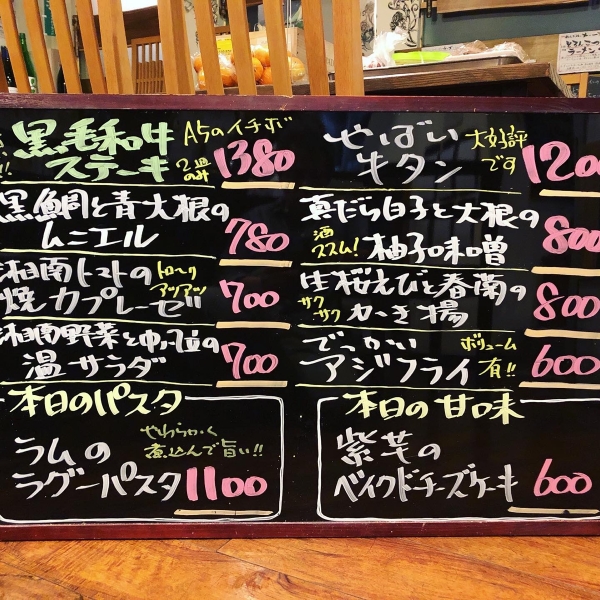 黒毛和牛
ステーキ
A5のイチボ
2皿
のみ
1380
黒鯛と青大根の
ムニエル
780
湘南トマトの
焼カプレーゼ
トローリ
アツアツ
700
湘南野菜と
温サラダ
700
本日のパスタ
ラムの
ラグーパスタ
やわらかく
煮込んで旨い!!
1100
やばい
牛タン
大好評
です
1200
真だら白子と大根の
柚子味噌
酒
ススム!
800
生桜えびと春菊の
かき揚
サク
サク
800
でっかい
アジフライ
ボリューム
有!!
600
本日の甘味
紫芋の
ベイクドチーズケーキ
600